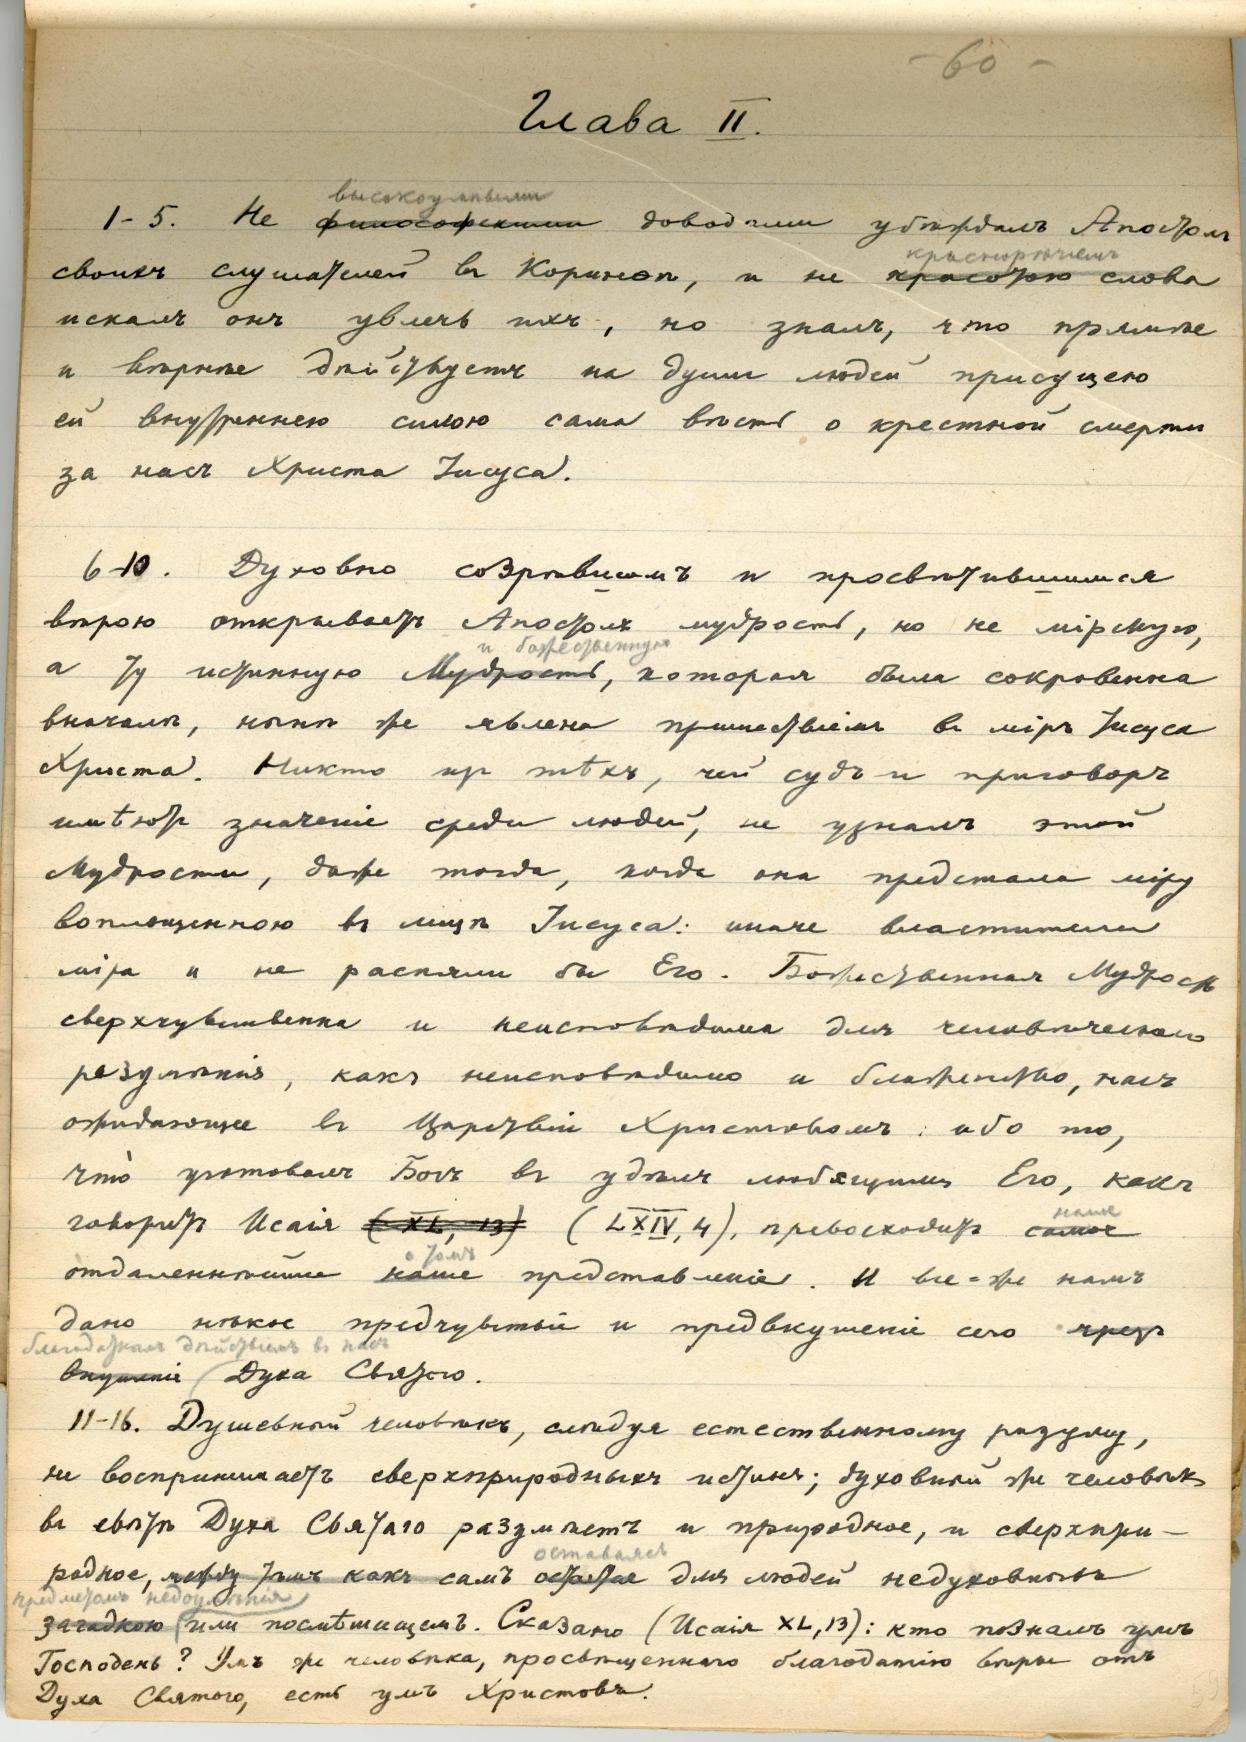 - 60 -
Глава II.
высокоумными
1-5. Не философскими доводами убѣждалъ Апостолъ
краснорѣчіемъ
своихъ слушателей въ Коринѳѣ, и не красотою слова
искалъ онъ увлечь ихъ, но зналъ, что прямѣе
и вѣрнѣе дѣйствуетъ на души людей присущею
ей внутреннею силою сама вѣсть о крестной смерти
за насъ Христа Іисуса.
6-10. Духовно созрѣвшимъ и просвѣтившимся
вѣрою открываетъ Апостолъ мудрость, но не мірскую,
и божественную
а ту истинную Мудрость, которая была сокровенна
вначалѣ, нынѣ же явлена пришествіемъ въ міръ Іисуса
Христа. Никто изъ тѣхъ, чей судъ и приговоръ
имѣютъ значеніе среди людей, не узналъ этой
Мудрости, даже тогда, когда она предстала міру
воплощенною въ лицѣ Іисуса: иначе властители
міра и не распяли бы Его. Божественная Мудрость
сверхчувственна и неисповѣдима для человѣческаго
разумѣнія, какъ неисповѣдимо и блаженство, насъ
ожидающее въ Царствіи Христовомъ: ибо то,
что̀ уготовалъ Богъ въ удѣлъ любящимъ Его, какъ
наше
говоритъ Исаія (XL, 13) (LXIV, 4), превосходитъ самое
о томъ
отдаленнѣйшее наше представленіе. И все-же намъ
дано нѣкое предчувствіе и предвкушеніе сего чрезъ
благодатнымъ дѣйствіемъ въ насъ
внушеніе Духа Святого.
11-16. Душевный человѣкъ, слѣдуя естественному разуму,
не воспринимаетъ сверхприродныхъ истинъ; духовный же человѣкъ
въ свѣтѣ Духа Святаго разумѣетъ и природное, и сверхпри-
оставаясь
родное, между тѣмъ какъ самъ остается для людей недуховныхъ
предметомъ недоумѣнія
загадкою или посмѣшищемъ. Сказано (Исаія XL, 13): кто позналъ умъ
Господень? Умъ же человѣка, просвѣщеннаго благодатію вѣры отъ
Духа Святого, есть умъ Христовъ.